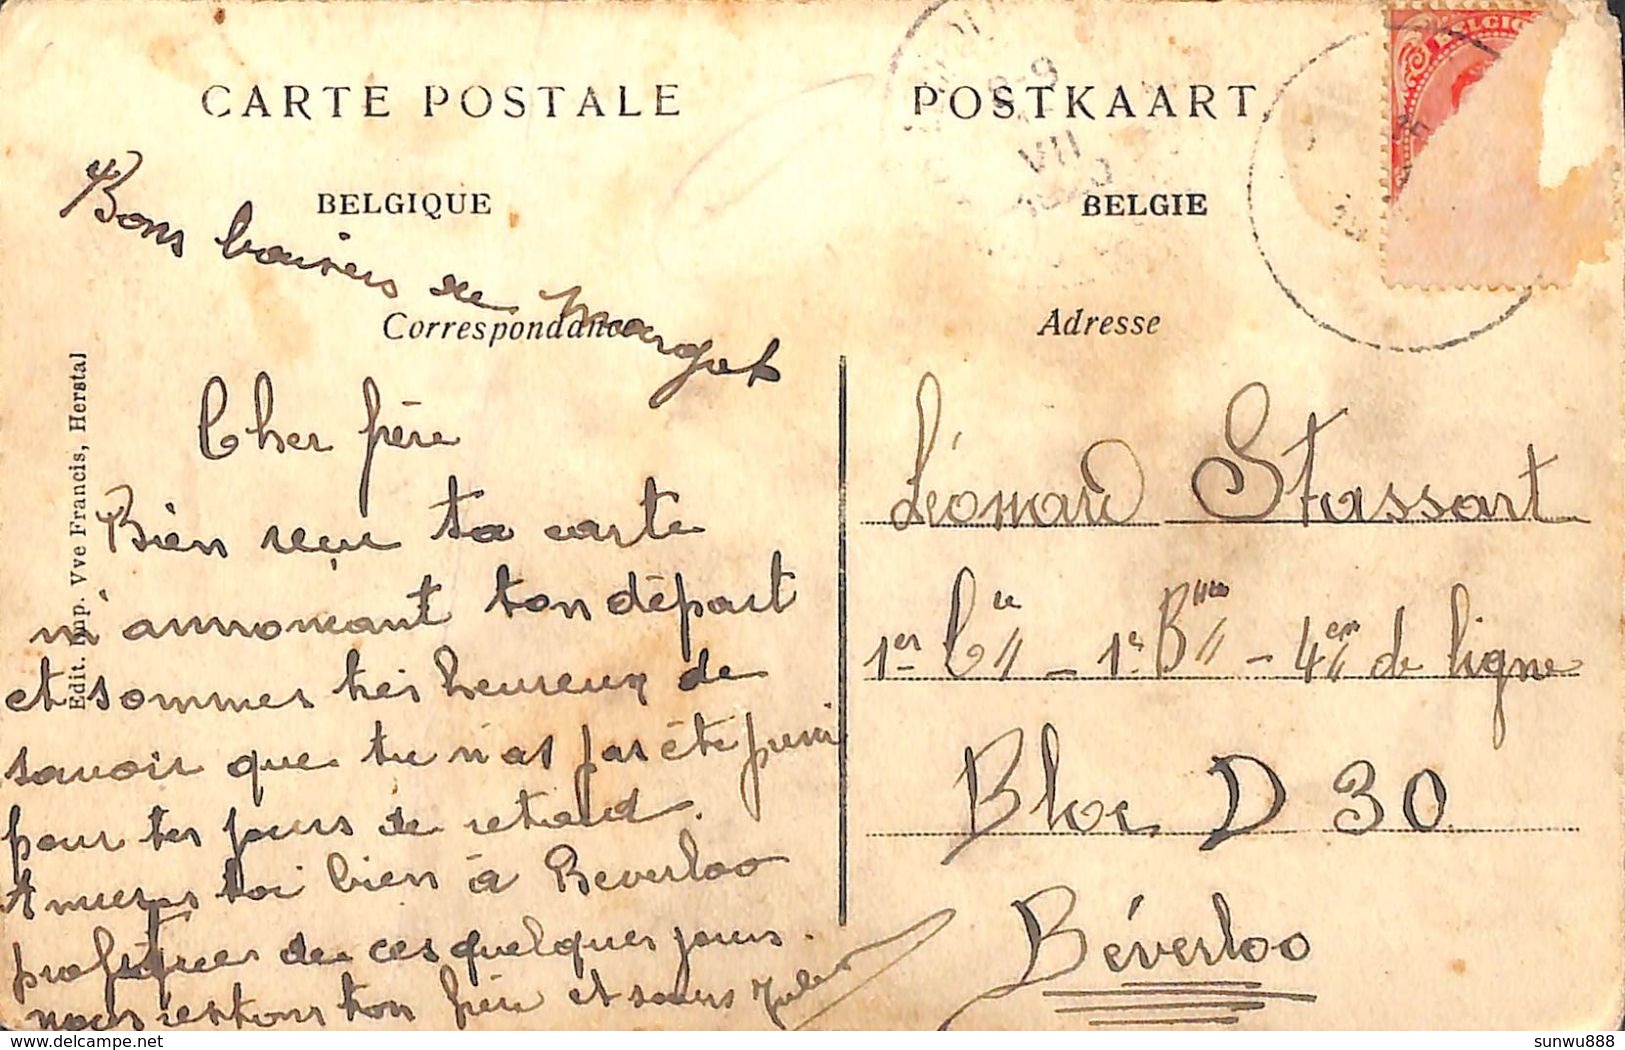 CARTE POSTALE
BELGIQUE
Bons baisers de Margot
Correspondance
Edit. Imp. Vve Francis, Herstal
Cher frère
Bien reçu ta carte
m'annoncant ton départ
et sommes très heureux de
savoir que tu n'as pas été puni
pour tes jours de retard.
Amuses toi bien à Beverloo
profitee de ces quelques jours.
nous restons ton frère et sœurs Jules
POSTKAART
BELGIE
8-9
VII
BELGIQ
Adresse
Léonard Stassart
1er Cie - 1er Bon - 4em de ligne
Bloc D 30
Béverloo
delcampe.net
sunwu888